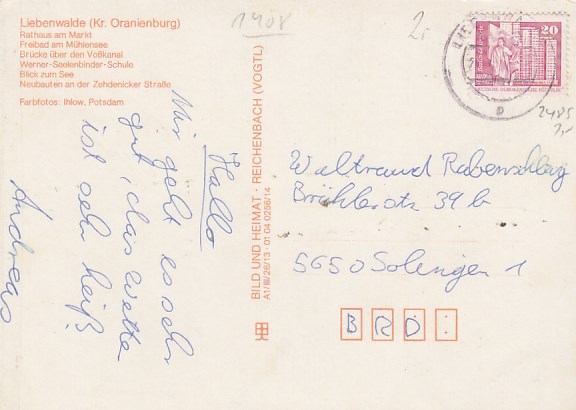 Liebenwalde (Kr. Oranienburg)
Rathaus am Markt
Freibad am Mühlensee
Brücke über den Voßkanal
Werner-Seelenbinder-Schule
Blick zum See
Neubauten an der Zehdenicker Straße
Farbfotos: Ihlow, Potsdam
1408
2,-
20
2485
1,-
Hallo
Mir geht es sehr
gut, das Wetter
ist sehr heiß!
Andreas
BILD UND HEIMAT · REICHENBACH (VOGTL)
A1/III/26/13 · 01 04 0256/14
Waltraud Rabenschlag
Brühlerstr 39 b
5650 Solingen 1
BRD: